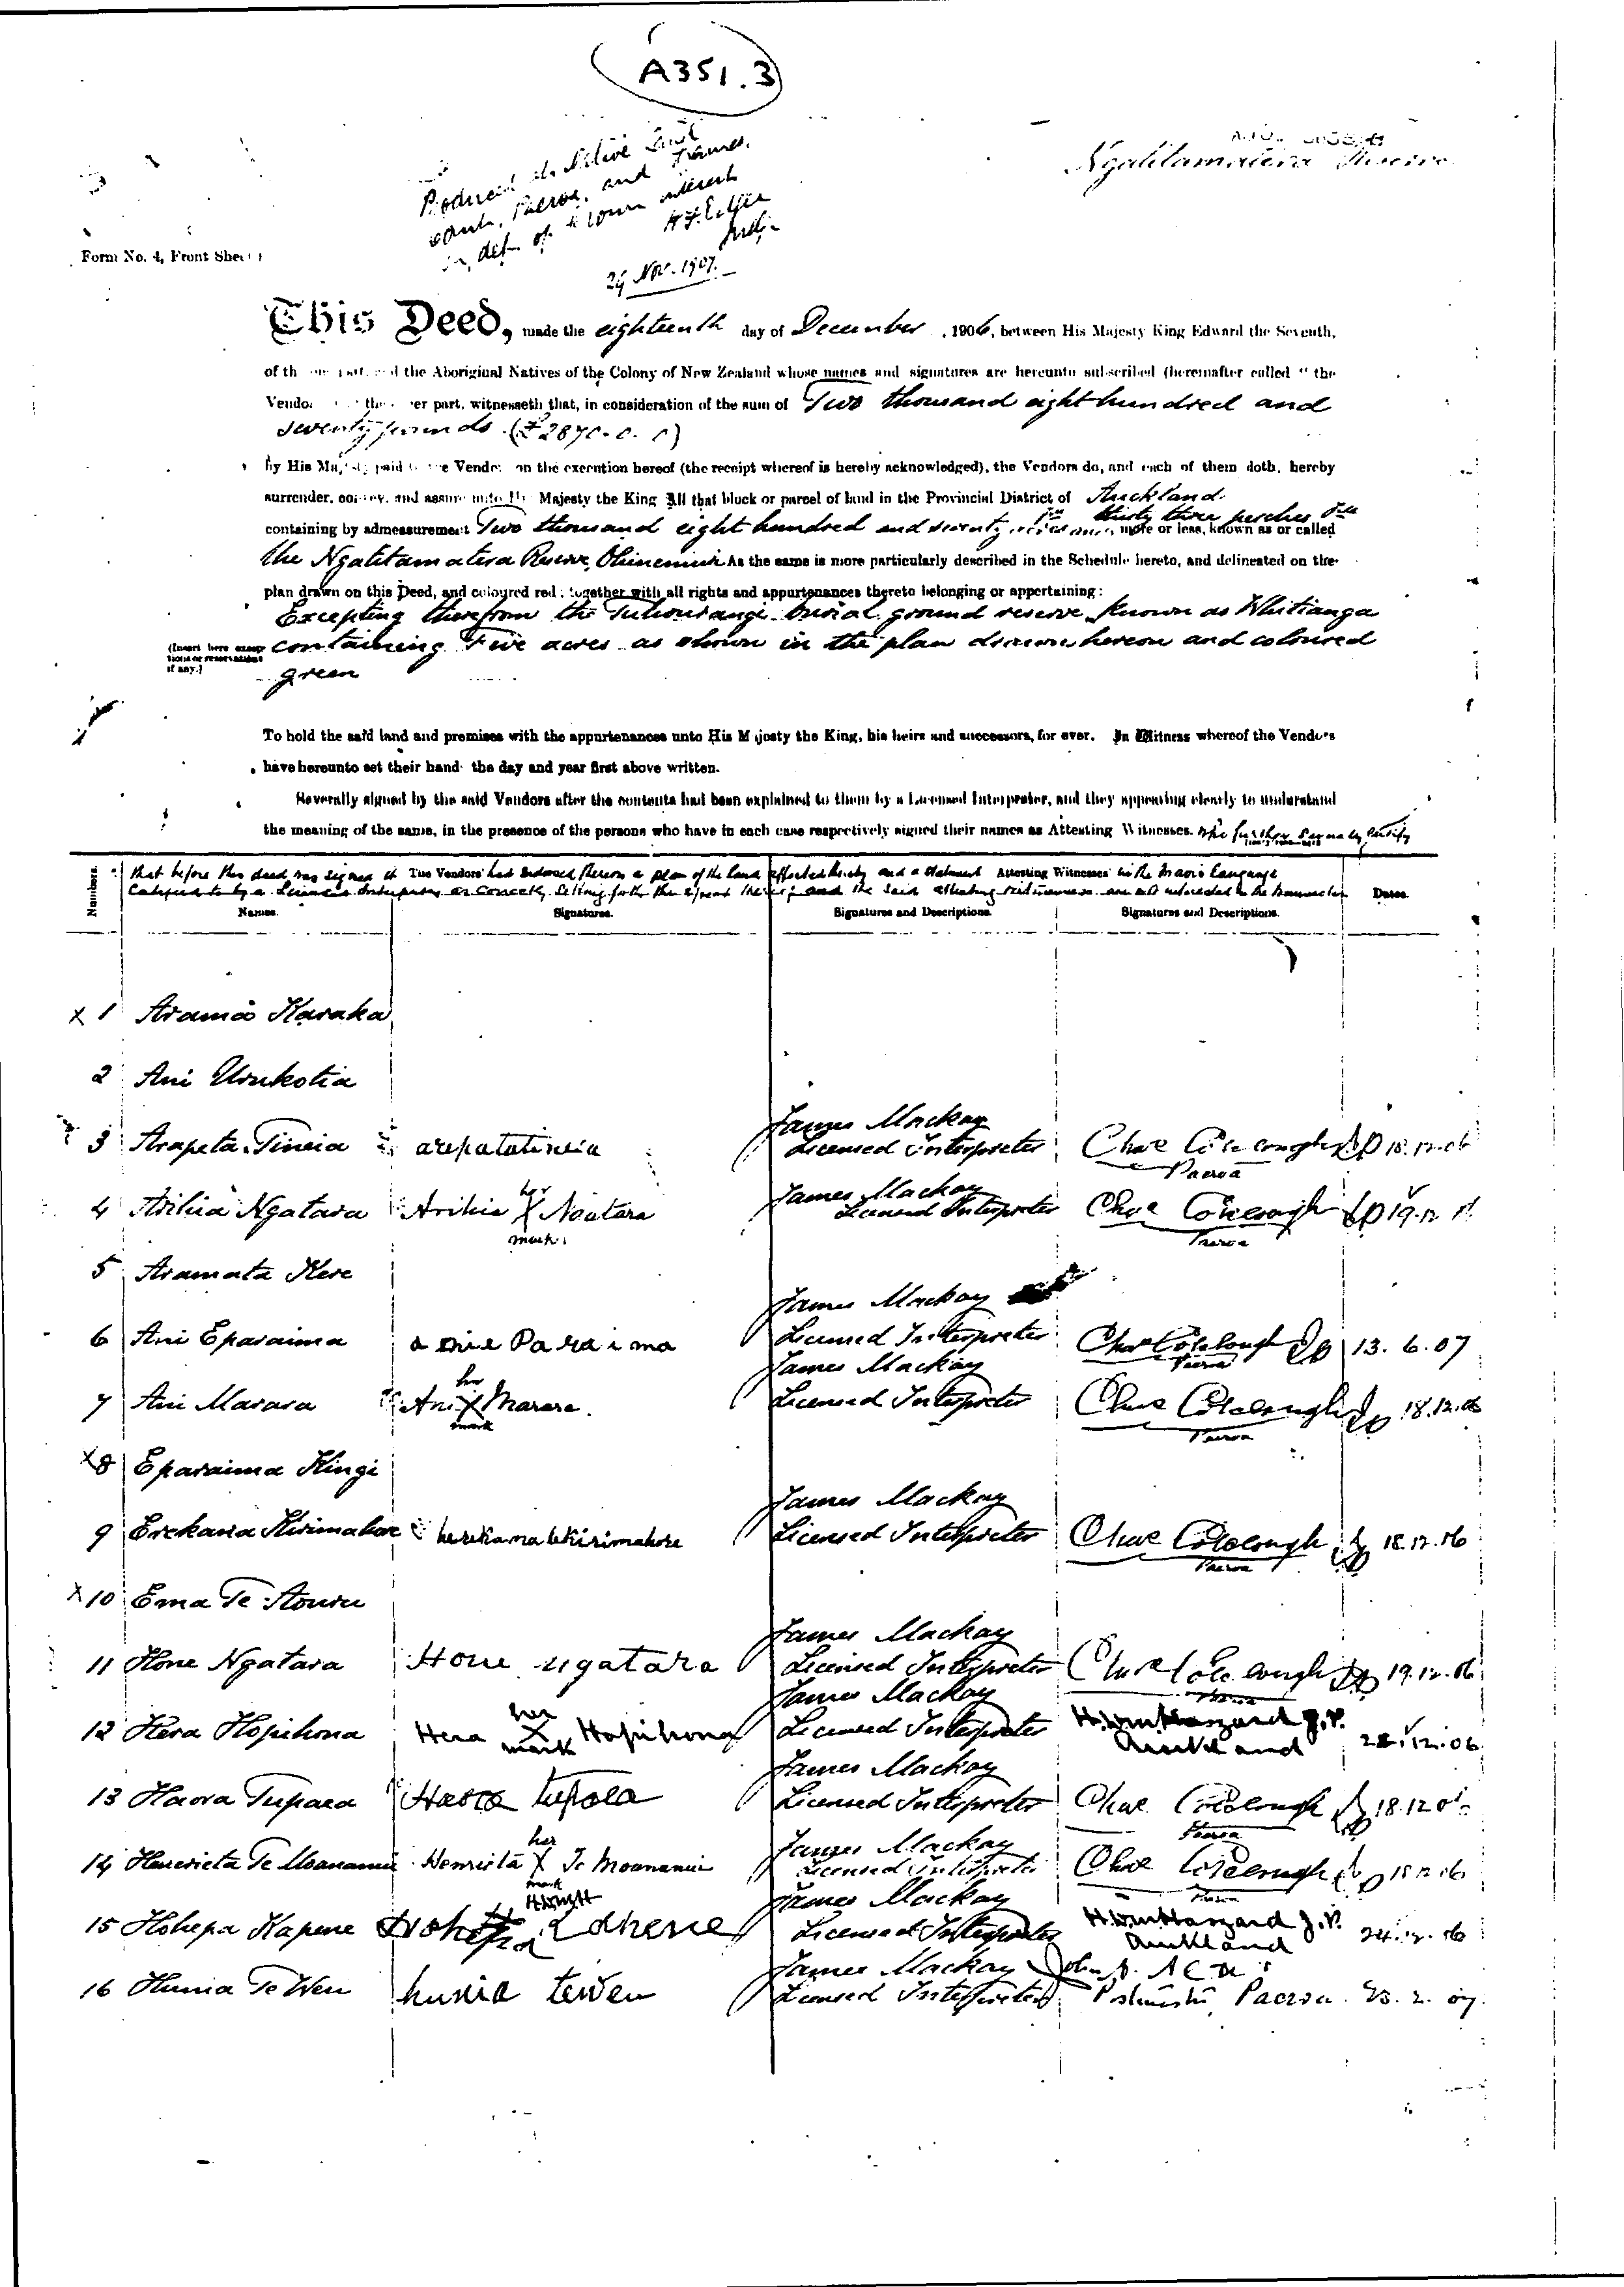 A351.3
Produced at Native Land
Court, Paeroa, and Thames.
in def. of Crown interest
Judge
29 Nov. 1907.
Ngatitamatera Reserve
Form No. 4, Front Sheet
This Deed, made the eighteenth day of December, 1906, between His Majesty King Edward the Seventh,
of the one part, and the Aboriginal Natives of the Colony of New Zealand whose names and signatures are hereunto subscribed (hereinafter called "the
Vendors the other part, witnesseth that, in consideration of the sum of Two thousand eight hundred and
seventy pounds (£2870-0-0)
by His Majesty paid to the Vendors on the execution hereof (the receipt whereof is hereby acknowledged), the Vendors do, and each of them doth, hereby
surrender, convey, and assure unto His Majesty the King All that block or parcel of land in the Provincial District of Auckland.
thirty three perches
containing by admeasurement Two thousand eight hundred and seventy acres more or less, known as or called
the Ngatitamatera Reserve, Ohinemuri As the same is more particularly described in the Schedule hereto, and delineated on the
plan drawn on this Deed, and coloured red; together with all rights and appurtenances thereto belonging or appertaining:
Excepting therefrom the Tuhourangi burial ground reserve known as Whitianga
(Insert here exceptions or reservations if any.) containing Five acres as shown in the plan drawn hereon and coloured
green
To hold the said land and premises with the appurtenances unto His Majesty the King, his heirs and successors, for ever. In Witness whereof the Vendors
have hereunto set their hands the day and year first above written.
Severally signed by the said Vendors after the contents had been explained to them by a Licensed Interpreter, and they appearing clearly to understand
the meaning of the same, in the presence of the persons who have in each case respectively signed their names as Attesting Witnesses. who further severally certify
that before this deed was signed by The Vendors had endorsed thereon a plan of the land affected thereby and a statement Attesting Witnesses in the Maori language
certified to by a Licensed Interpreter as correctly setting forth the effect thereof and the said attesting witnesses are not interested in the transaction
Numbers. Names. Signatures. Signatures and Descriptions. Signatures and Descriptions. Dates.
x 1 Arama Karaka
2 Ani Urukotia
James Mackay
3 Arapeta Tineia arepatatineia Licensed Interpreter Chas Colclough JP 18.12.06
Paeroa
her
James Mackay
4 Arihia Ngatara Arihia X Ngatara Licensed Interpreter Chas Colclough JP 19.12
mark. Paeroa
5 Aramata Kere
James Mackay
6 Ani Eparaima a nie Paraima Licensed Interpreter Chas Colclough JP 13.6.07
Paeroa
her James Mackay
7 Ani Marara Ani X Marara. Licensed Interpreter Chas Colclough JP 18.12.06
mark Paeroa
x8 Eparaima Kingi
James Mackay
9 Erekana Kirimahore herekana tekirimahore Licensed Interpreter Chas Colclough JP 18.12.06
Paeroa
x10 Ema Te Aouru
James Mackay
11 Hone Ngatara Hone ngatara Licensed Interpreter Chas Colclough JP 19.12.06
Paeroa
her James Mackay
12 Hera Hopihona Hera X Hopihona Licensed Interpreter H. Wm Hazard J.P. 22.12.06
mark Auckland
James Mackay
13 Haora Tupaea Haora tupaea Licensed Interpreter Chas Colclough JP 18.12.06
Paeroa
her James Mackay
14 Henerieta Te Moananui Henrieta X Te Moananui Licensed Interpreter Chas Colclough JP 18.12.06
mark Paeroa
James Mackay
15 Hohepa Kapene Hohepa Licensed Interpreter H. Wm Hazard J.P. 24.12.06
Auckland
James Mackay
16 Hunia Te Weu hunia teweu Licensed Interpreter Postmaster, Paeroa. 23.2.07.